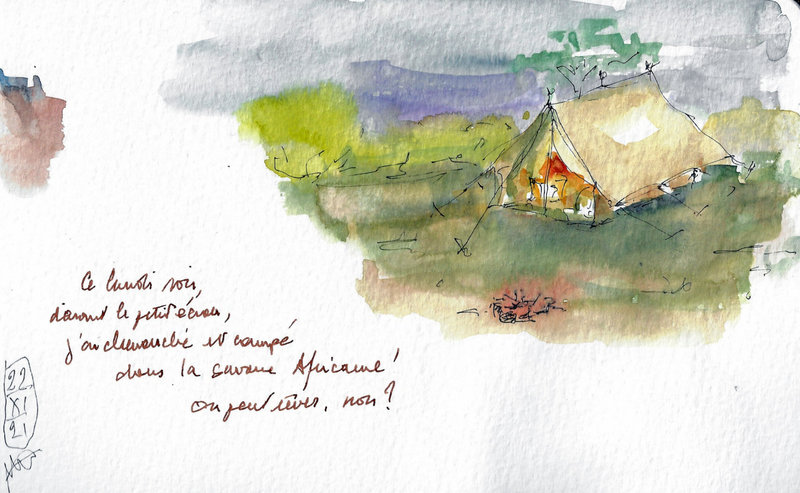 Ce lundi soir,
devant le petit écran,
j'ai chevauché et campé
dans la savane Africaine !
On peut rêver, non ?
22
XI
21